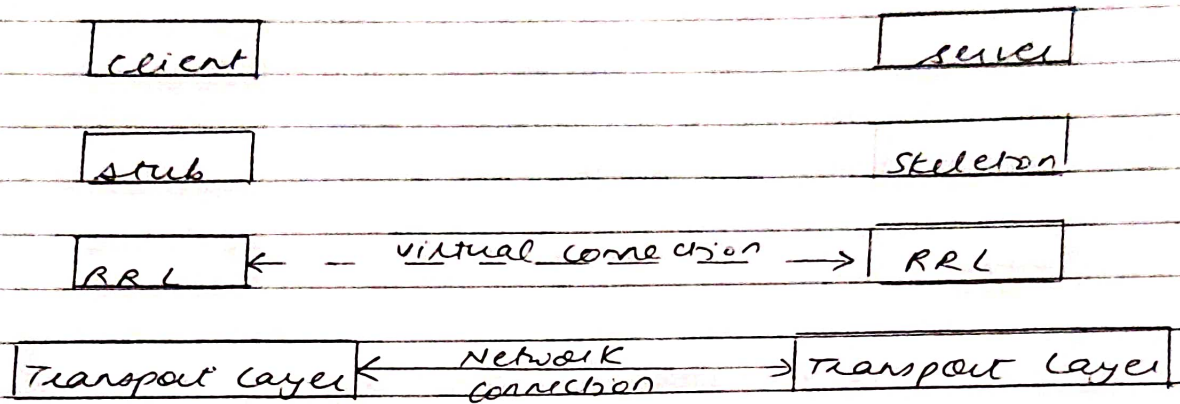 client server
stub skeleton
RRL virtual connection RRL
Transport Layer Network connection Transport Layer